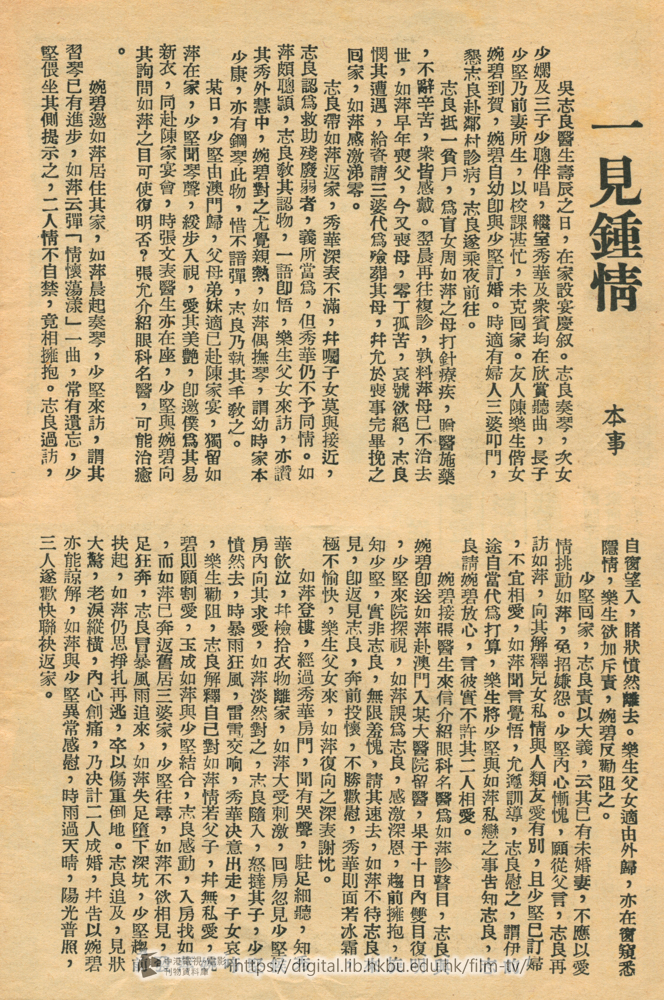 一見鍾情
本事
吳志良醫生壽辰之日,在家設宴慶叙。志良奏琴,次女
少嫻及三子少聰伴唱,繼室秀華及衆賓均在欣賞聽曲,長子
少堅乃前妻所生,以校課甚忙,未克囘家。友人陳樂生偕女
婉碧到賀,婉碧自幼卽與少堅訂婚。時適有婦人三婆叩門,
懇志良赴鄰村診病,志良遂乘夜前往。
志良抵一貧戶,爲盲女周如萍之母打針療疾,贈醫施藥
,不辭辛苦,衆皆感戴。翌晨再往複診,孰料萍母已不治去
世,如萍早年喪父,今又喪母,零丁孤苦,哀號欲絕,志良
憫其遭遇,給資請三婆代爲殮葬其母,幷允於喪事完畢挽之
囘家,如萍感激涕零。
志良帶如萍返家,秀華深表不滿,幷囑子女莫與接近,
志良認爲救助殘廢弱者,義所當爲,但秀華仍不予同情。如
萍頗聰頴,志良敎其認物,一語卽悟,樂生父女來訪,亦讚
其秀外慧中,婉碧對之尤覺親熱,如萍偶撫琴,謂幼時家本
少康,亦有鋼琴此物,惜不諳彈,志良乃執其手敎之。
某日,少堅由澳門歸,父母弟妹適已赴陳家宴,獨留如
萍在家,少堅聞琴聲,緩步入視,愛其美艷,卽邀僕爲其易
新衣,同赴陳家宴會,時張文表醫生亦在座,少堅與婉碧向
其詢問如萍之目可使復明否?張允介紹眼科名醫,可能治癒
。
婉碧邀如萍居住其家,如萍晨起奏琴,少堅來訪,謂其
習琴已有進步,如萍云彈「情懷蕩漾」一曲,常有遺忘,少
堅偎坐其側提示之,二人情不自禁,竟相擁抱。志良過訪,
自窗望入,睹狀憤然離去。樂生父女適由外歸,亦在窗窺悉
隱情,樂生欲加斥責,婉碧反勸阻之。
少堅回家,志良責以大義,云其已有未婚妻,不應以愛
情挑動如萍,免招嫌怨。少堅內心慚愧,願從父言,志良再
訪如萍,向其解釋兒女私情與人類友愛有別,且少堅已訂婦
,不宜相愛,如萍聞言覺悟,允遵訓導,志良慰之,謂伊前
途自當代爲打算,樂生將少堅與如萍私戀之事告知志良,志
良請婉碧放心,言彼實不許其二人相愛。
婉碧接張醫生來信介紹眼科名醫爲如萍診瞽目,志良與
婉碧卽送如萍赴澳門入某大醫院留醫,果于十日內雙目復明
,少堅來院探視,如萍誤爲志良,感激深恩,趨前擁抱,
知少堅,實非志良,無限羞愧,請其速去,如萍不待志良
見,卽返見志良,奔前投懷,不勝歡慰,秀華則面若冰霜
極不愉快,樂生父女來,如萍復向之深表謝忱。
如萍登樓,經過秀華房門,聞有哭聲,駐足細聽,知
華飲泣,幷檢拾衣物離家,如萍大受刺激,囘房忽見少堅
房內向其求愛,如萍淡然對之,志良隨入,怒撻其子,少
憤然去,時暴雨狂風,雷電交响,秀華決意出走,子女哀
,樂生勸阻,志良解釋自己對如萍情若父子,幷無私愛,
碧則願割愛,玉成如萍與少堅結合,志良感動,入房找如
,而如萍已奔返舊居三婆家,少堅往尋,如萍不欲相見,
足狂奔,志良冒暴風雨追來,如萍失足墮下深坑,少堅趨前
扶起,如萍仍思掙扎再逃,卒以傷重倒地。志良追及,見狀
大驚,老淚縱橫,內心創痛,乃決計二人成婚,幷告以婉碧
亦能諒解,如萍與少堅異常感慰,時雨過天晴,陽光普照,
三人遂歡快聯袂返家。
香港電視·電影
刊物資料庫
https://digital.lib.hkbu.edu.hk/film-tv/